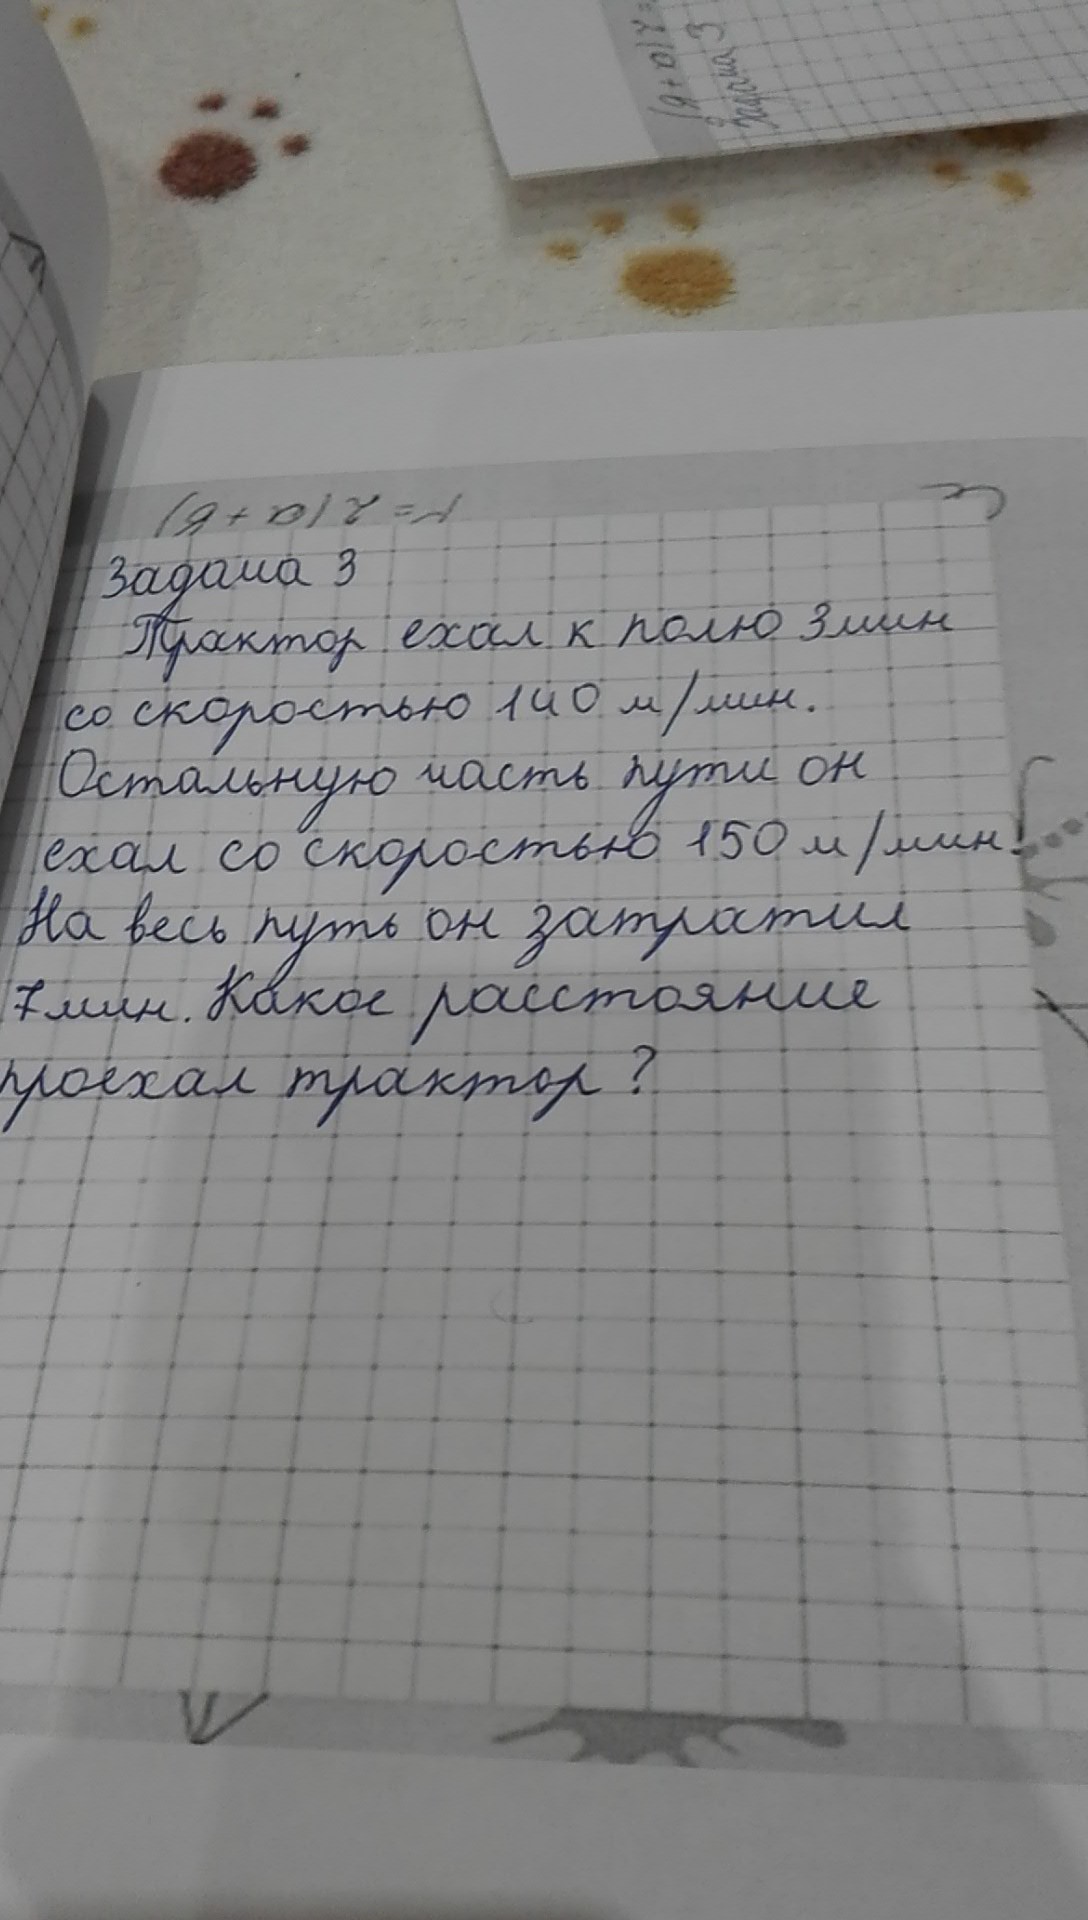 (a+b)
Задача 3
r=2(a+b)
Задача 3
Трактор ехал к полю 3мин
со скоростью 140 м/мин.
Остальную часть пути он
ехал со скоростью 150 м/мин.
На весь путь он затратил
7мин. Какое расстояние
проехал трактор?